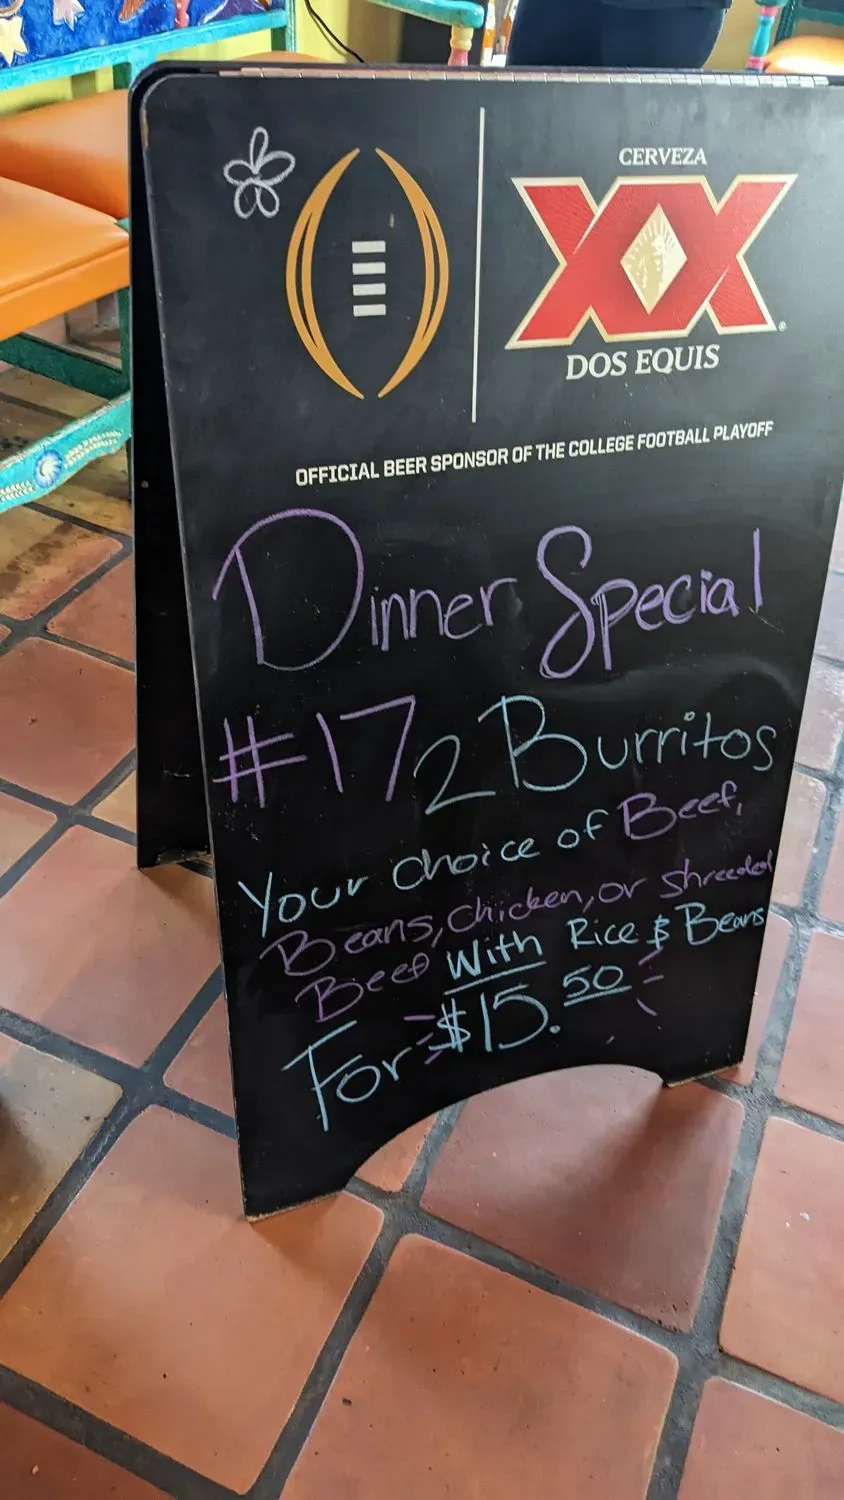 CERVEZA
XX
DOS EQUIS
OFFICIAL BEER SPONSOR OF THE COLLEGE FOOTBALL PLAYOFF
Dinner Special
#17 2 Burritos
Your choice of Beef,
Beans, Chicken, or Shreeded
Beef With Rice & Beans
For $15.50